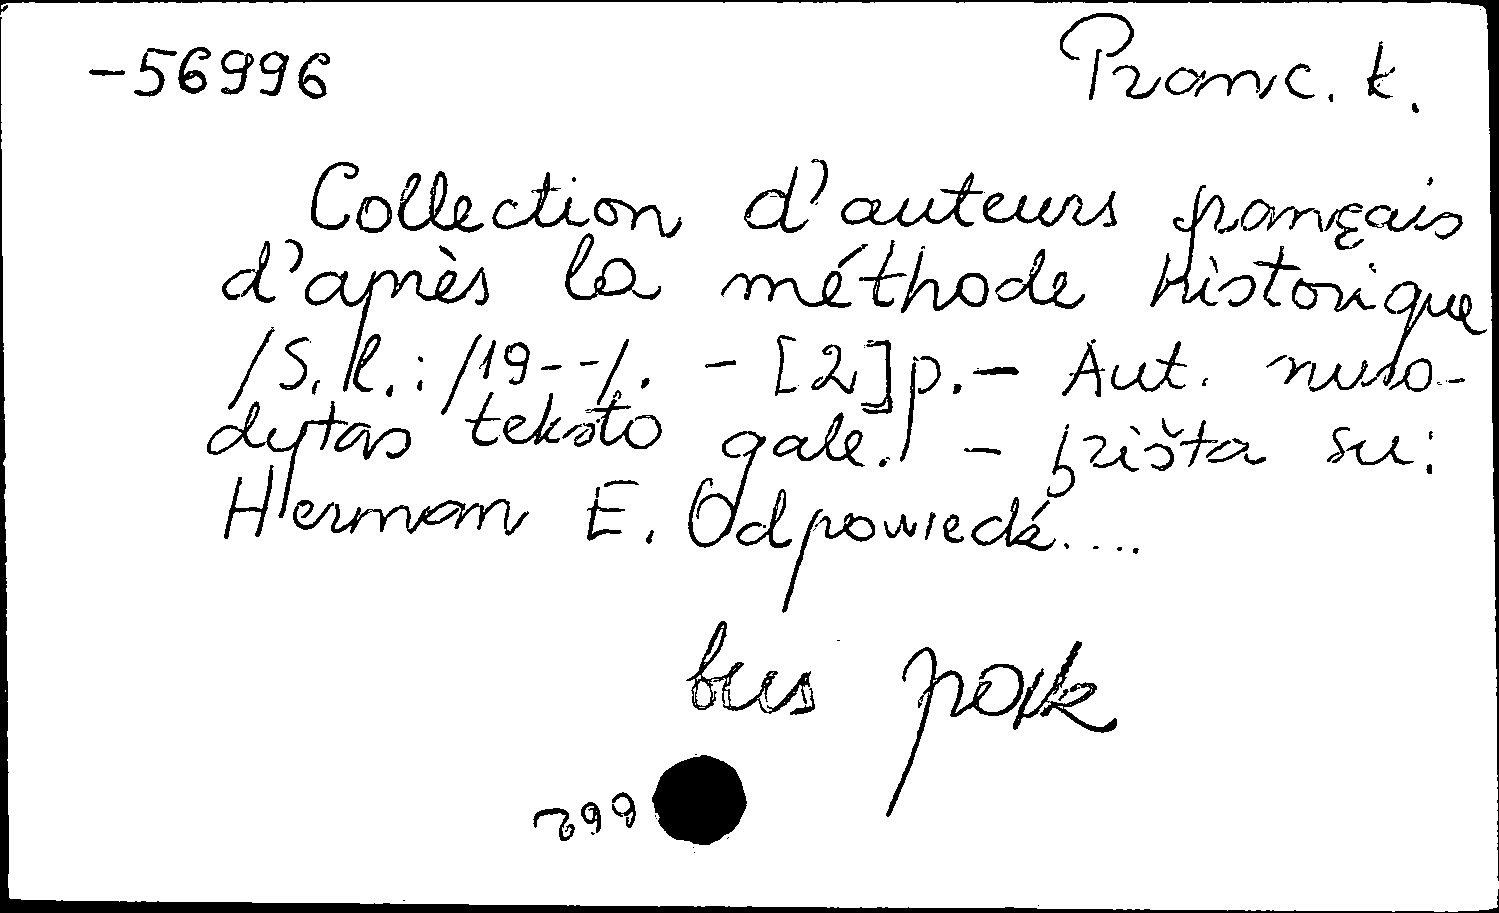 -56996
Pranc. k.
Collection d'auteurs français
d'après la méthode historique
/S.l.: /19--/. - [2] p. - Aut. nuro-
dytas teksto gale. - Įrišta su:
Herman E. Odpowiedź....
bus
662